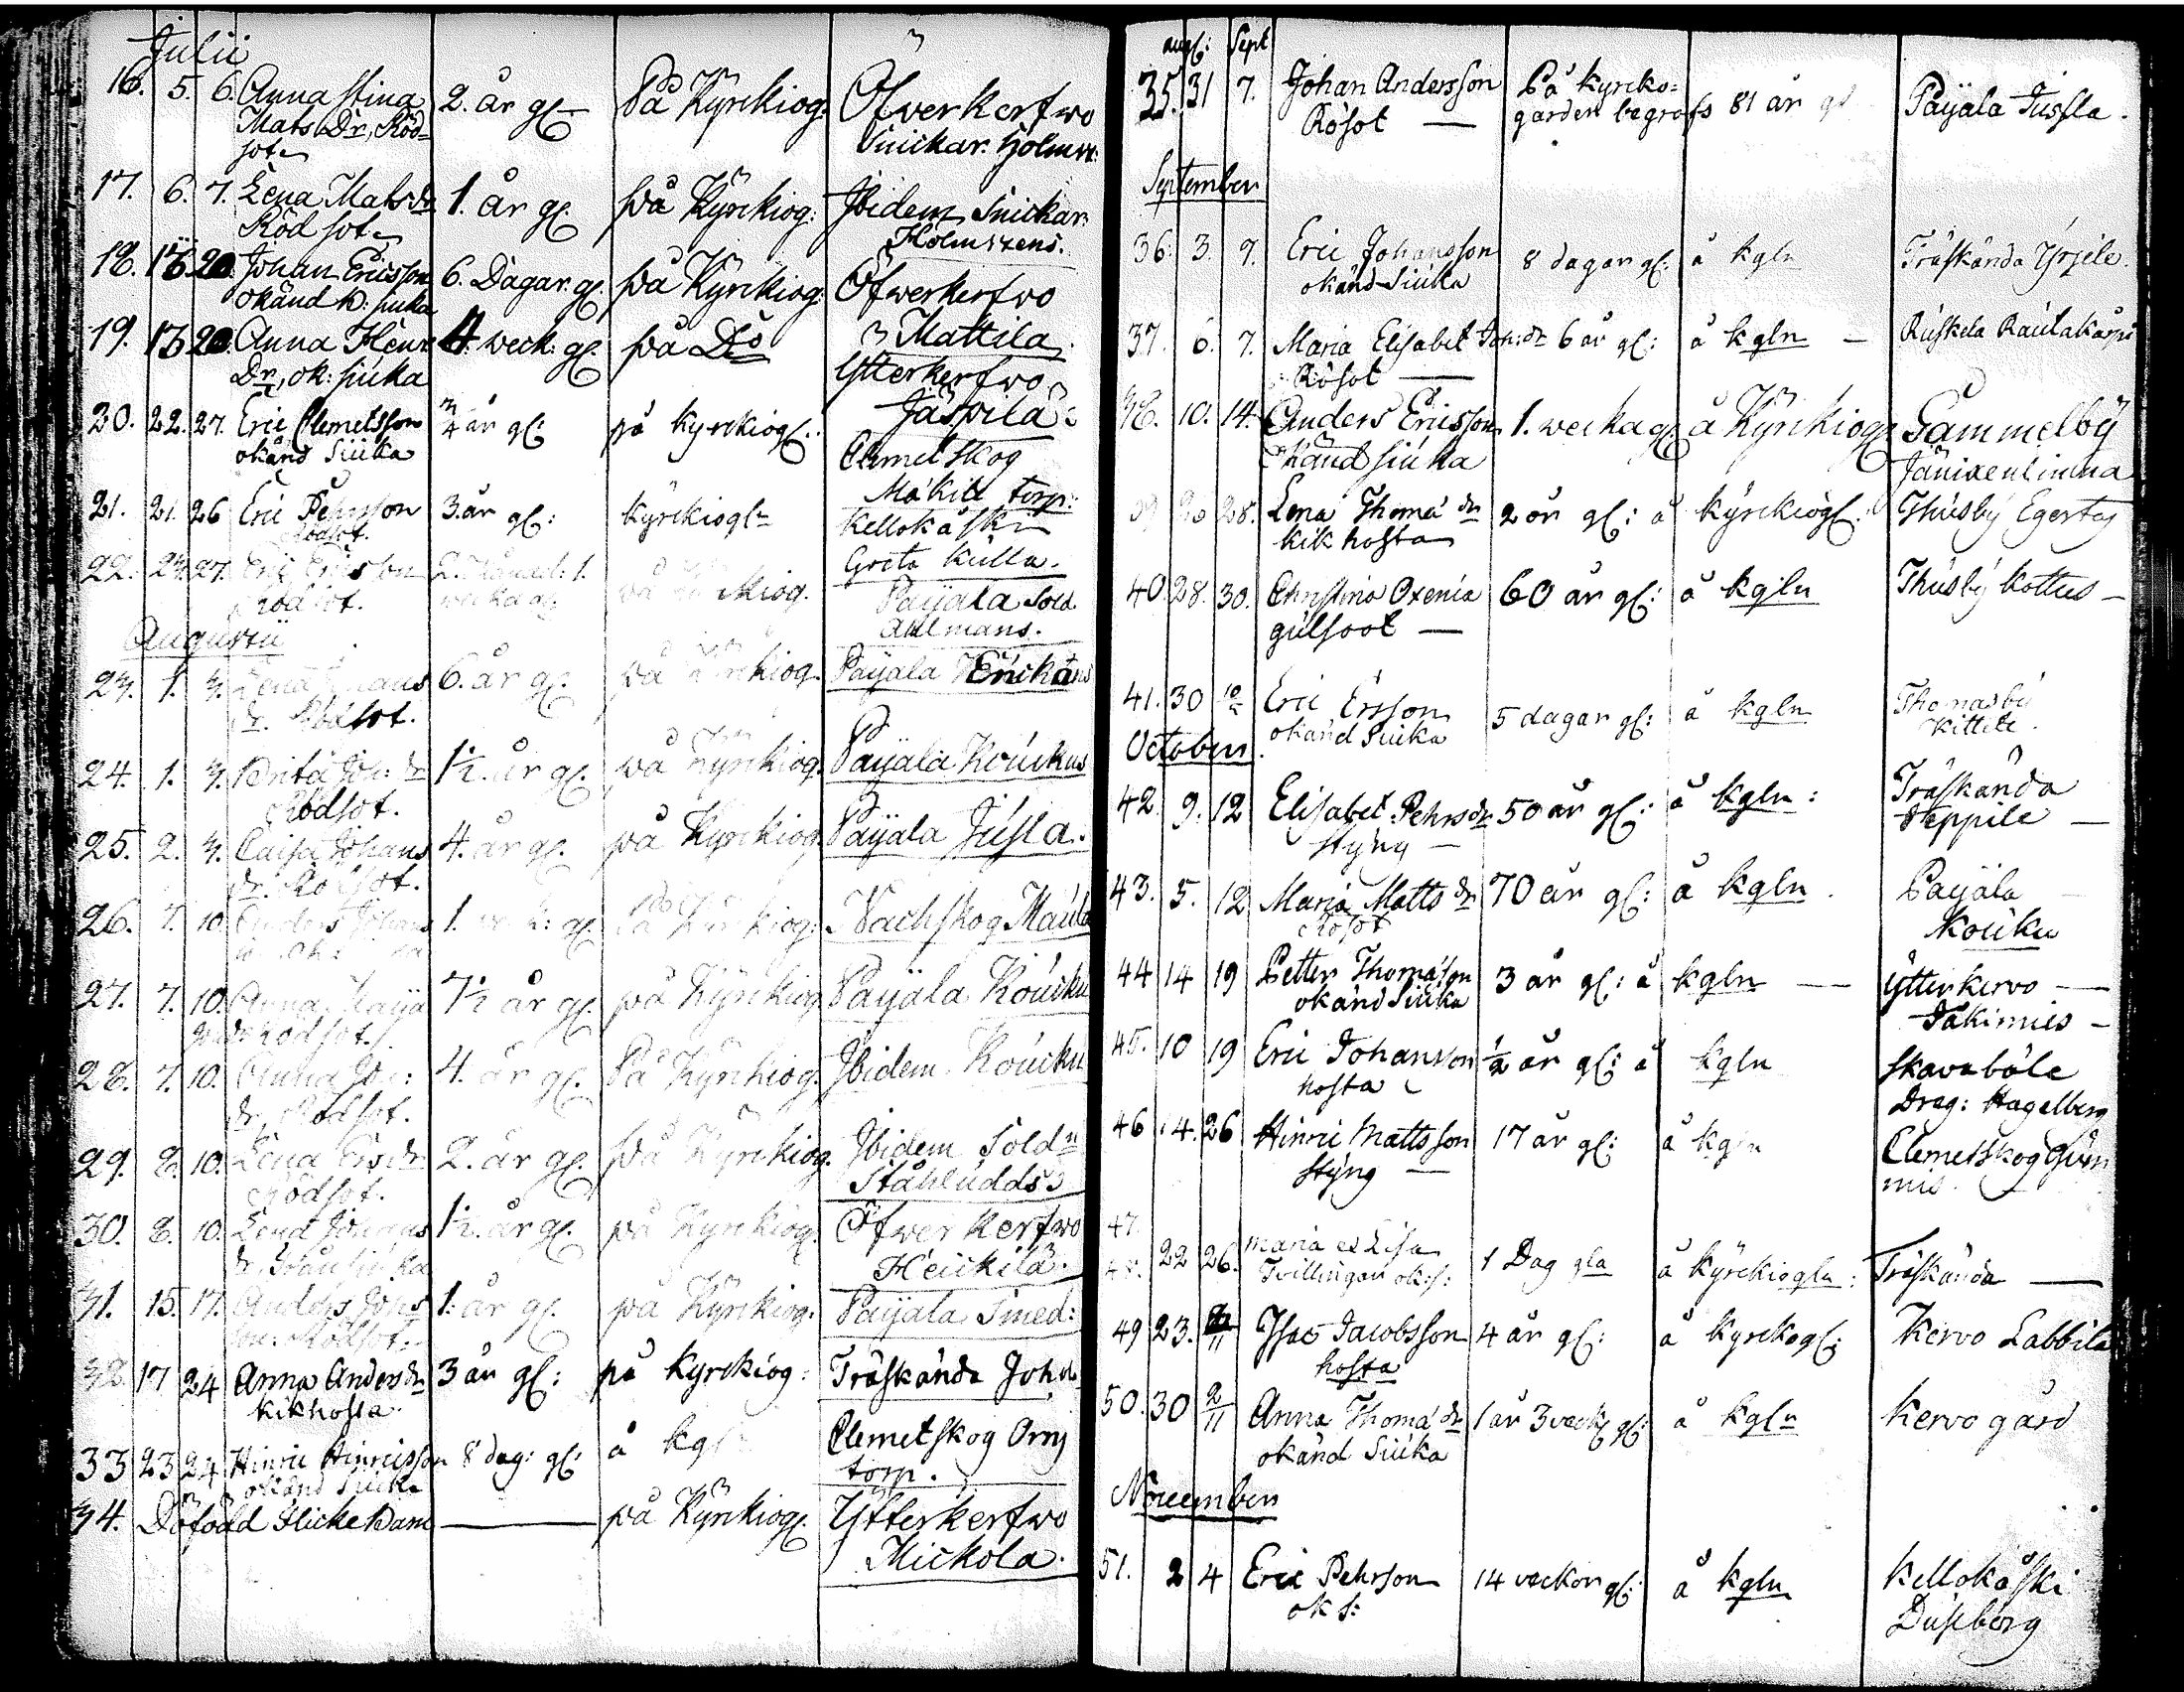 Julii
16. 5. 6. Anna Stina 2. år gl. På Kyrkiog: Öfwerkerfwo
Mats Dr, Röd- Snickar. Holmst:
sot.
17. 6. 7. Lena Mats dr 1. år gl. på Kyrkiog: Ibidem Snickar.
Röd sot. Holmstens.
18. 16 20 Johan Ericsson 6. Dagar gl. på Kyrkiog: Öfwerkerfwo
okänd b: siuka Mattila.
19. 13 20 Anna Henr. 4. weck: gl. på Do Ytterkerfwo
Dr, ok: siuka Jäspilä.
20. 22. 27. Eric Clemetsson 3/4 år gl: på kyrkiogl: Clemetskog
okänd Siuka Mäkilä torp:
21. 21. 26 Eric Pehrsson 3. år gl: kyrkiogln Kellokåski
Rödsot. Greta Kulla.
22. 24. 27. Eric Ericsson på Kyrkiog. Paijala Sold.
Rödsot. Ahlmans.
Augustii
23. 1. 3. Lena Johans 6. år gl. på Kyrkiog. Paijala Erickäns
dr. Rödsot.
24. 1. 3. Brita Joh: dr 1½. år gl. på Kyrkiog. Paijala Kouckus
Rödsot.
25. 2. 3. Caisa Johans 4. år gl. på Kyrkiog Paijala Jusla.
dr. Rödsot.
26. 7. 10. Anders Johans 1. på Kyrkiog: Nachskog Maula
27. 7. 10. Anna Maija 7½ år gl. på Kyrkiog Paijala Koucku
Rödsot.
28. 7. 10. Anna Joh: 4. år gl. På Kyrkiog. Ibidem Koucku
dr, Rödsot.
29. 8. 10. Lena Ers dr 2. år gl. på Kyrkiog. Ibidem Soldn
Rödsot. Ståhludds
30. 8. 10. Lena Johans 1½. år gl. på Kyrkiog. Öfwerkerfwo
dr. Heickilä.
31. 15. 17. Anders Johs 1. år gl. på Kyrkiog: Paijala Smed:
son: Rödsot.
32 17 24 Anna Anders dr 3 år gl: på kyrkiog: Träskända Joh
kikhosta.
33 23 24 Hinric Hinricsson 8 dag: gl: å kgl Clemetskog Orry
okänd Siuka torp.
34. Döfödd Flicke Barn — på Kyrkiogl. Ytterkerfwo
Mickola.
aug: Sept
35. 31 7. Johan Andersson På kyrcko= 81 år gl Paijala Jussla.
Rösot — gården begrafs
September
36. 3. 7. Eric Johansson 8 dagar gl: å kgln Träskända Yrjele.
okänd Siuka
37. 6. 7. Maria Elisabet Joh: dr 6 år gl: å kgln — Ruskela Rautakårpi
Rösot —
38. 10. 14. Anders Ericsson 1. wecka gl. å Kyrkiogl Gammelby
okänd siuka Jänixenlinna
39 28. Lena Thomæ dr 2 år gl: å kyrkiogl. Thusby Egertog
kikhosta
40. 28. 30. Christina Oxenia 60 år gl: å kgln Thusby Kottus —
gulsoot —
41. 30 Eric Ersson 5 dagar gl: å kgln Thomasby
okänd Siuka Kittele.
October.
42. 9. 12 Elisabet Pehrs dr 50 år gl: å kgln: Träskända
styng — Seppile —
43. 5. 12 Maria Matts dr 70 år gl: å kgln. Paijala
Rösot Kouku
44 14 19 Petter Thomæson 3 år gl: å kgln — Ytterkervo —
okänd Siuka Takimies —
45. 10 19 Eric Johansson ½ år gl: å kgln Skavaböle
hosta Drag: Hagelberg
46 14. 26 Hinric Mattsson 17 år gl: å kgln Clemetskog Gum
styng — mis.
47.
48. 22 26. Maria et Lisa 1 Dag gla å kyrkiogln: Träskända —
Tvillingar ok: s:
49 23. Isac Jacobsson 4 år gl: å kyrkogl: Kervo Labbila
hosta
50. 30 2/11 Anna Thomæ dr 1 år 3 veck gl: å kgln Kervo gård
okänd Siuka
November
51. 2 4 Eric Pehrson 14 veckor gl: å kgln Kellokåski
ok s: Dusborg